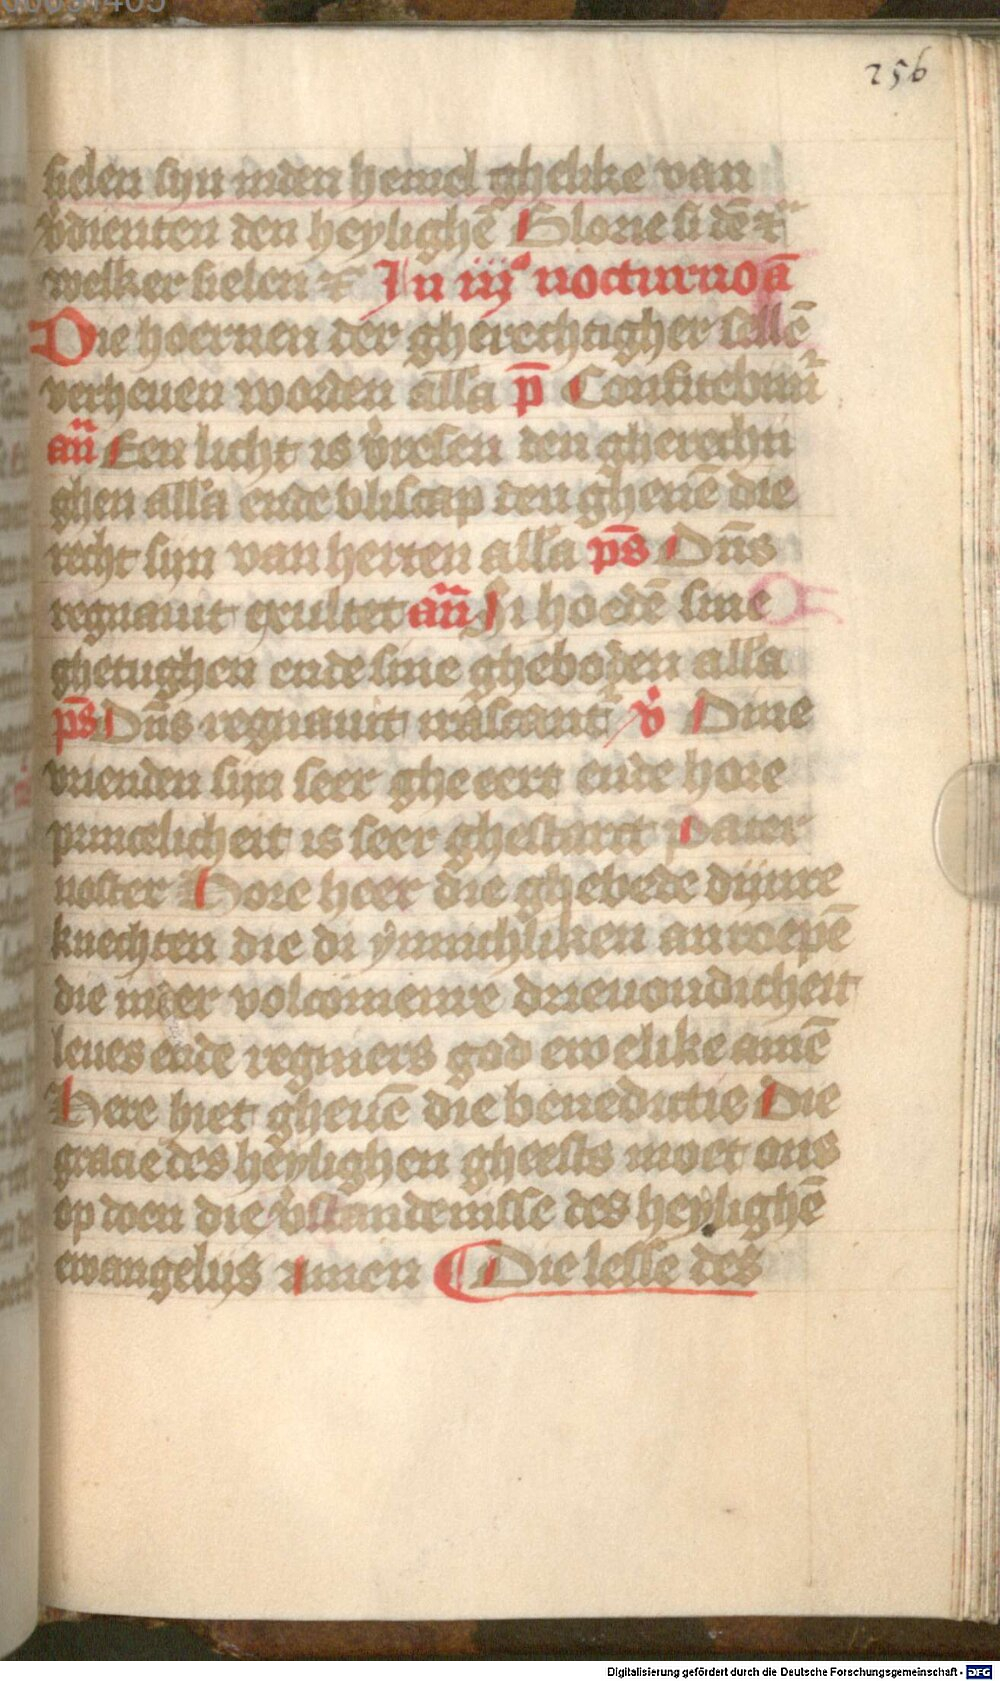 256
sielen syn inden hemel ghelike van
v̾dienten den heylighē Glorie si dē ⁊c̃
welker sielen ⁊c̃ In iijᵃ nocturno ā
Die hoernen der gherechtigher sellē
verheuen worden alla p̄ Confitebim̃
an̄ Een licht is v̾resen den gherechti
ghen alla ende bliscap den ghenē die
recht syn van herten alla ps̄ Dn̄s
regnauit exultet an̄ Si hoedē sine
ghetughen ende sine gheboden alla
ps̄ Dn̄s regnauit irascant̾ v̾ Dine
vrienden sijn seer gheeert ende hore
princelicheit is seer ghestarct Pater
noster Hore heer die ghebede dijnre
knechten die di ynnichliken anroepē
die inder volcomenre drieuoudicheit
leues ende regniers god ewelike amē
Here hiet gheuē die benedictie Die
gracie des heylighen gheests moet ons
op doen die v̾standenisse des heylighē
ewangelijs Amen Die lesse des
Digitalisierung gefördert durch die Deutsche Forschungsgemeinschaft - DFG